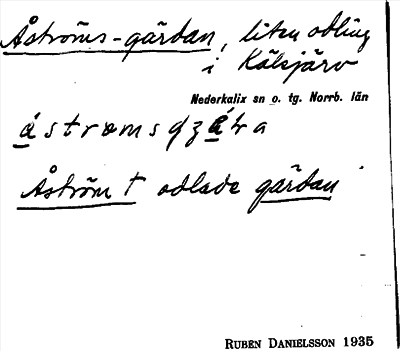 Åströms-gärdan, liten odling
i Kälsjärv
Nederkalix sn o. tg. Norrb. län
Åström † odlade gärdan
RUBEN DANIELSSON 1935